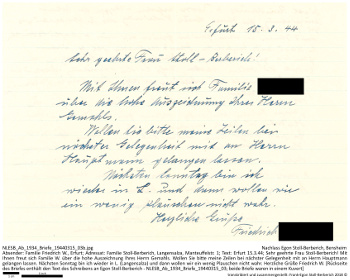 Erfurt 15. 3. 44
Sehr geehrte Frau Stoll-Berberich!
Mit Ihnen freut sich Familie
über die hohe Auszeichnung Ihres Herrn
Gemahls.
Wollen Sie bitte meine Zeilen bei
nächster Gelegenheit mit an Herrn
Hauptmann gelangen lassen.
Nächsten Sonntag bin ich
wieder in L. und dann wollen wir
ein wenig plauschen nicht wahr.
Herzliche Grüße
Friedrich
NLESB_Ab_1934_Briefe_19440315_03b.jpg
Nachlass Egon Stoll-Berberich, Bensheim
Absender: Familie Friedrich W., Erfurt; Adressat: Familie Stoll-Berberich, Langensalza, Manteuffelstr. 3; Text: Erfurt 15.3.44; Sehr geehrte Frau Stoll-Berberich! Mit
Ihnen freut sich Familie W. über die hohe Auszeichnung Ihres Herrn Gemahls. Wollen Sie bitte meine Zeilen bei nächster Gelegenheit mit an Herrn Hauptmann
gelangen lassen. Nächsten Sonntag bin ich wieder in L. (Langensalza) und dann wollen wir ein wenig Plauschen nicht wahr. Herzliche Grüße Friedrich W. (Rückseite
des Briefes enthält den Text des Schreibens an Egon Stoll-Berberich - NLESB_Ab_1934_Briefe_19440315_03, beide Briefe waren in einem Kuvert)